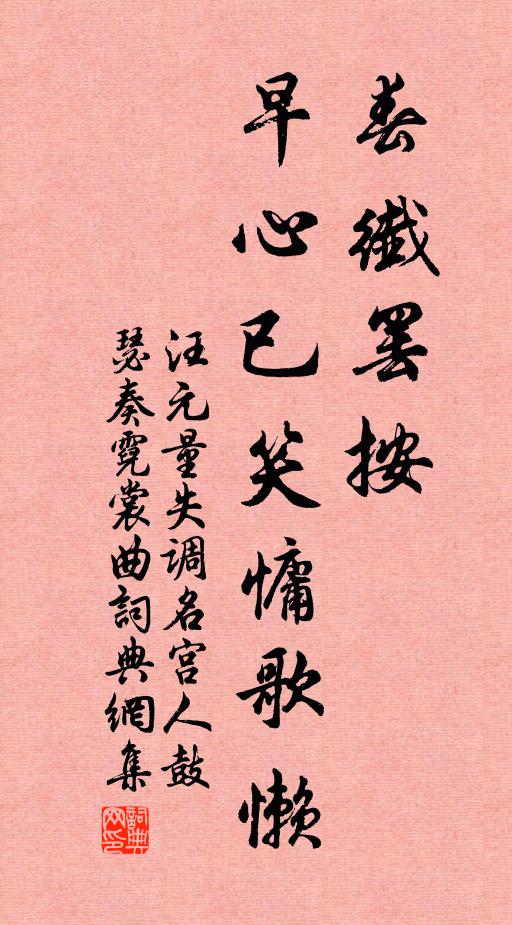 春纖罢按
早心已笑慵歌懒
汪元量失调名宫人鼓
瑟奏霓裳曲詞典網集
詞典网印